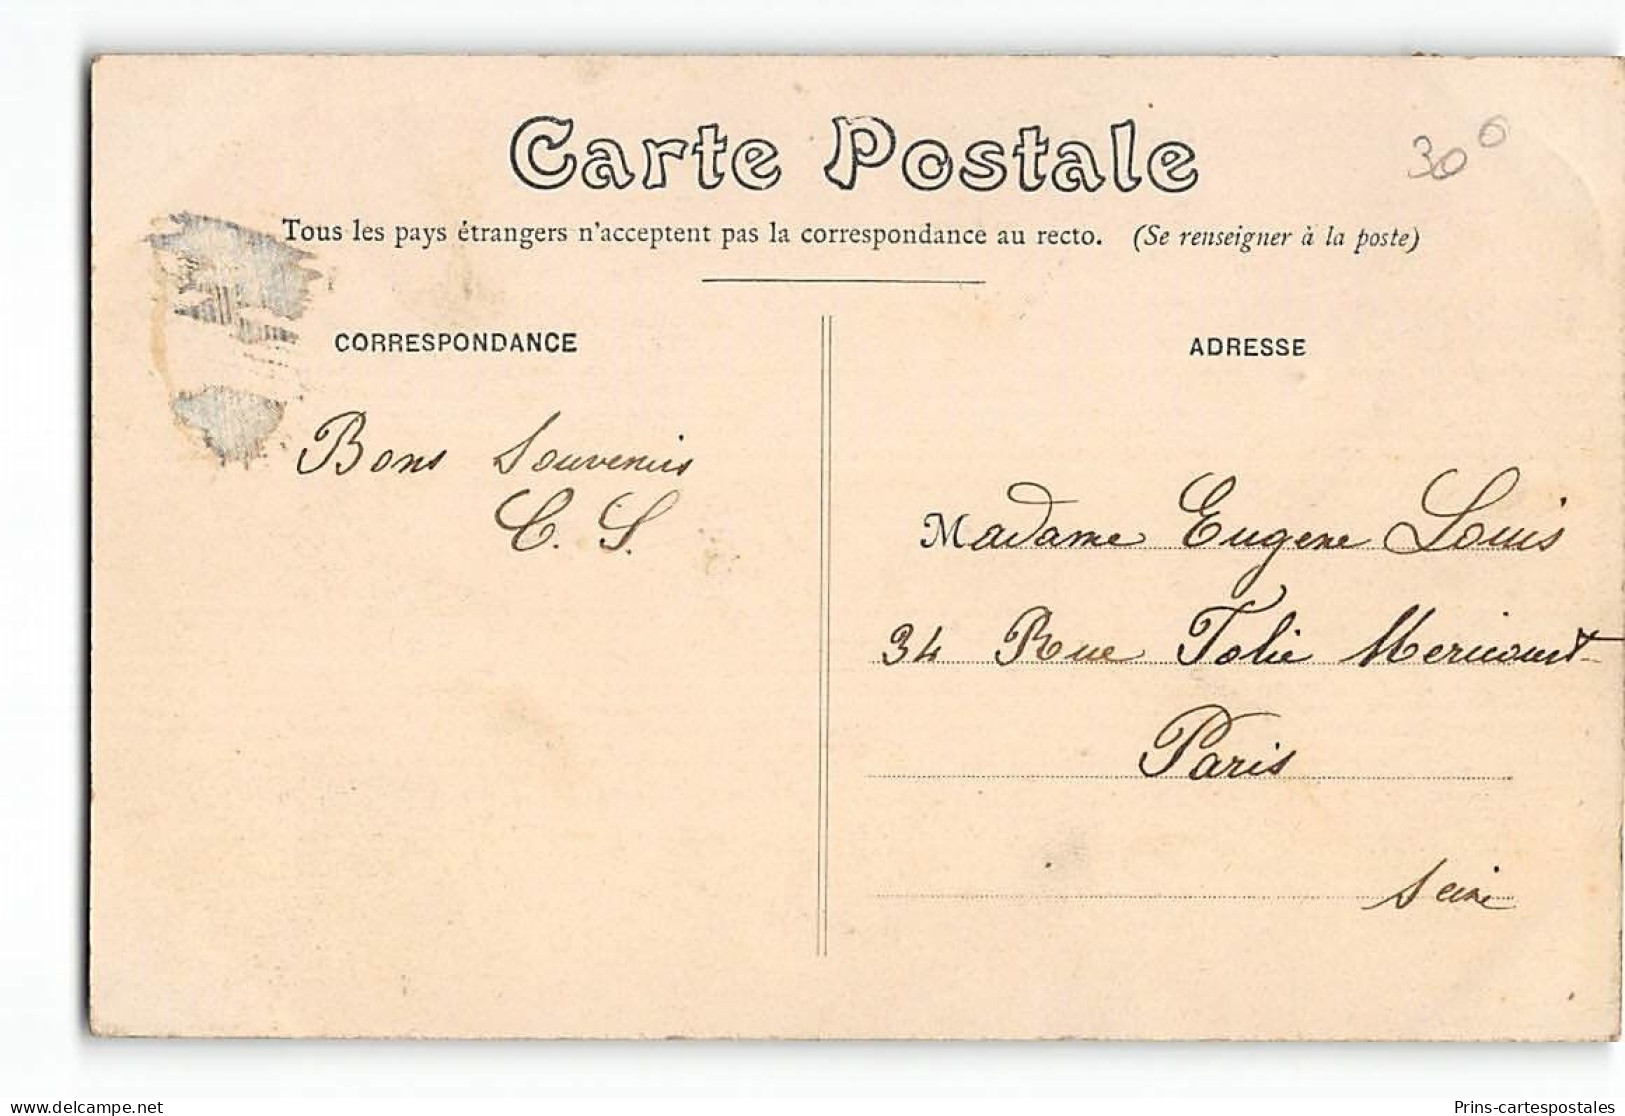 Carte Postale
30 6
Tous les pays étrangers n'acceptent pas la correspondance au recto. (Se renseigner à la poste)
CORRESPONDANCE
ADRESSE
Bons Souvenirs
C. S.
Madame Eugene Louis
34 Rue Folie Mericourt
Paris
Seine
delcampe.net
Prins-cartespostales